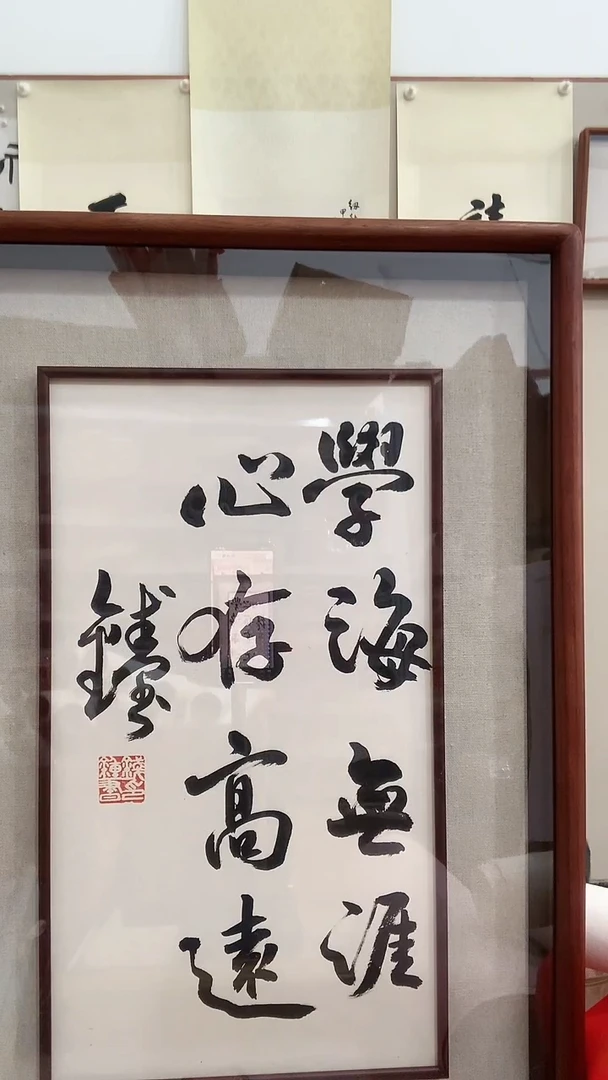 學海無涯
心存高遠
錢鍾書